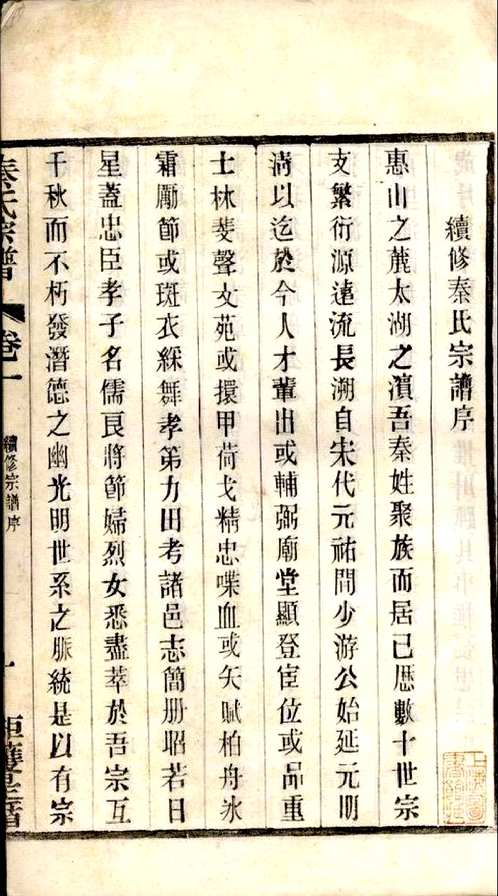 續修秦氏宗譜序
惠山之麓太湖之濱吾秦姓聚族而居已歷數十世宗
支繁衍源遠流長溯自宋代元祐間少游公始延元明
淸以迄於今人才輩出或輔弼廟堂顯登宦位或品重
士林斐聲文苑或擐甲荷戈精忠喋血或矢賦柏舟冰
霜勵節或斑衣綵舞孝弟力田考諸邑志簡册昭若日
星蓋忠臣孝子名儒良將節婦烈女悉盡萃於吾宗互
千秋而不朽發潛德之幽光明世系之脈統是以有宗
秦氏宗譜
卷一
續修宗譜序
一